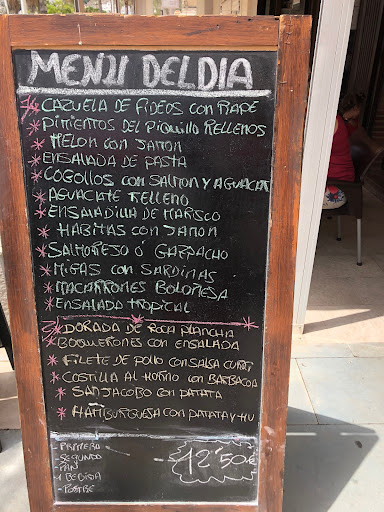 MENU DEL DIA
1º CAZUELA DE FIDEOS CON RAPE
* PIMIENTOS DEL PIQUILLO RELLENOS
* MELON CON JAMON
* ENSALADA DE PASTA
* COGOLLOS CON SALMON Y AGUACATE
* AGUACATE RELLENO
* ENSALADILLA DE MARISCO
* HABITAS CON JAMON
* SALMOREJO Ó GAZPACHO
* MIGAS CON SARDINAS
* MACARRONES BOLOÑESA
* ENSALADA TROPICAL
2º DORADA DE ROCA PLANCHA
* BOQUERONES CON ENSALADA
* FILETE DE POLLO CON SALSA CURRY
* COSTILLA AL HORNO CON BARBACOA
* SAN JACOBO CON PATATA
* HAMBURGUESA CON PATATA Y HU
- PRIMERO
- SEGUNDO
- PAN
- BEBIDA
- POSTRE
12'50€